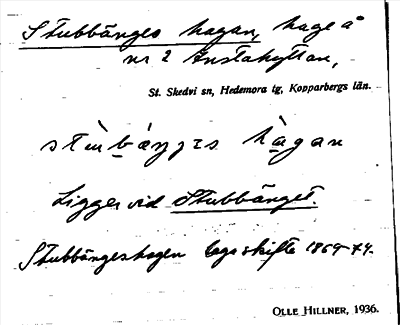 Stubbänges hagan, hage å
nr 2 Instahyttan,
St. Skedvi sn, Hedemora tg, Kopparbergs län.
hàgan
Ligger vid Stubbänget.
Stubbängeshagen laga skifte 1869-74.
OLLE HILLNER, 1936.